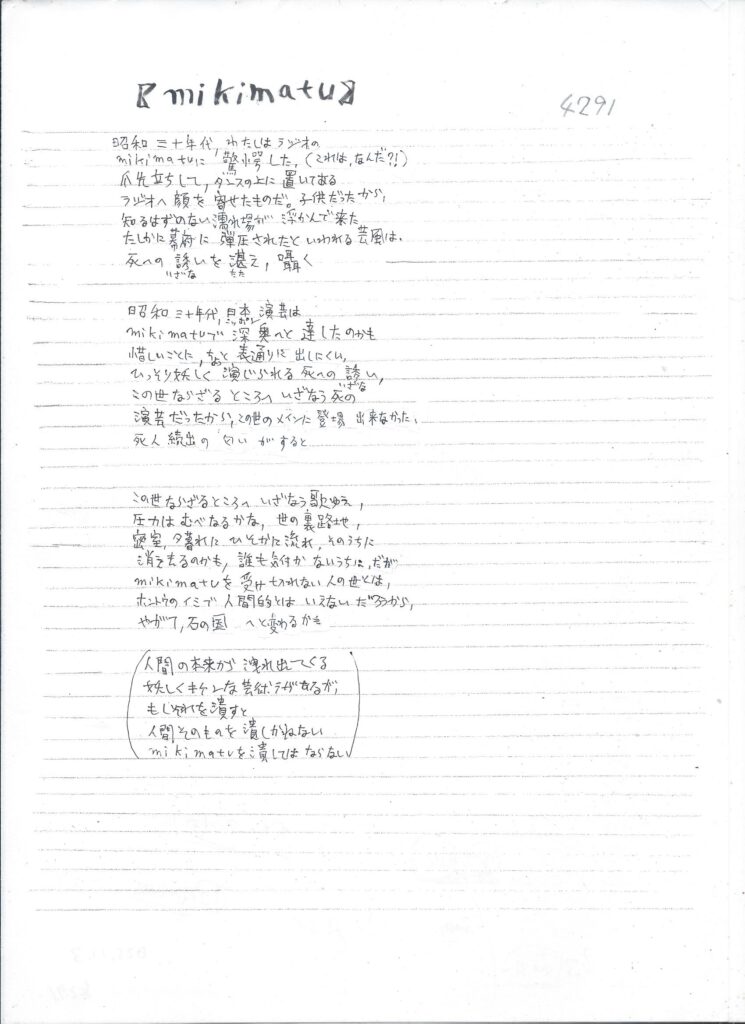 【mikimatu】
4291
昭和三十年代,わたしはラジオの
mikimatuに驚愕した,(これは,なんだ?!)
爪先立ちして,タンスの上に置いてある
ラジオへ顔を寄せたものだ。子供だったから,
知るはずのない濡れ場が浮かんで来た
たしかに幕府に弾圧されたといわれる芸風は,
死への誘いを湛え,囁く
いざな たた
昭和三十年代,日本演芸は
ニッポン
mikimatuで深奥へと達したのかも
惜しいことに,ちょっと表通りに出しにくい,
ひっそり妖しく演じられる死への誘い,
いざな
この世ならざるところへいざなう死の
演芸だったから,この世のメインに登場出来なかった,
死人続出の匂いがすると
この世ならざるところへいざなう歌ゆえ,
圧力はむべなるかな,世の裏路地,
密室,夕暮れにひそかに流れ,そのうちに
消え去るのかも,誰も気付かないうちに,だが
mikimatuを受け切れない人の世とは,
ホントウのイミで人間的とはいえないだろうから,
やがて,石の国へと変わるかも
(人間の本来が洩れ出てくる
妖しくキケンな芸術デザインがあるが,
もしそれを潰すと
人間そのものを潰しかねない
mikimatuを潰してはならない)